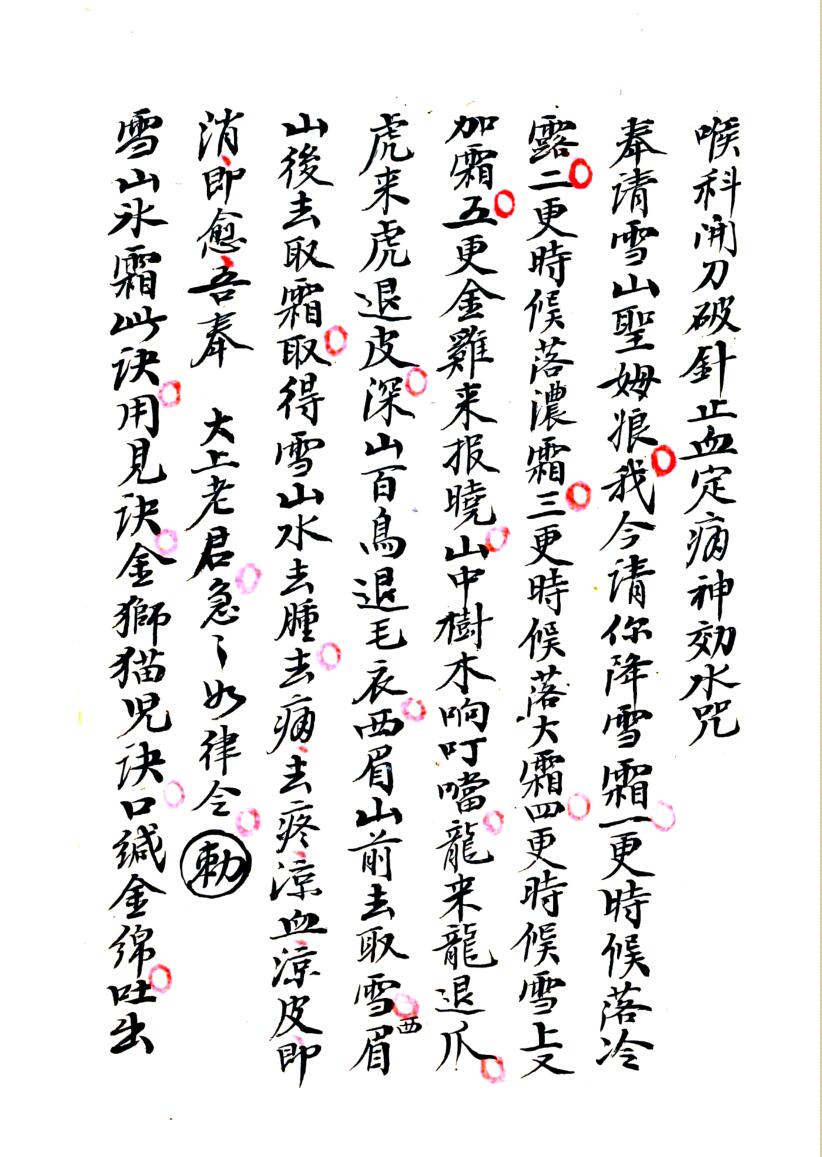 喉科開刀破針止血定痛神効水咒
奉請雪山聖姆狼我今請你降雪霜一更時候落冷
露二更時候落濃霜三更時候落大霜四更時候雪上又
加霜五更金雞来报曉山中樹木响叮噹龍来龍退爪
虎来虎退皮深山百鳥退毛衣西眉山前去取雪西眉
山後去取霜取得雪山水去腫去痛去疼涼血涼皮即
消即愈吾奉 大上老君急〻如律令 勅
雪山氷霜此诀用見诀金獅猫児诀口缄金綿吐出